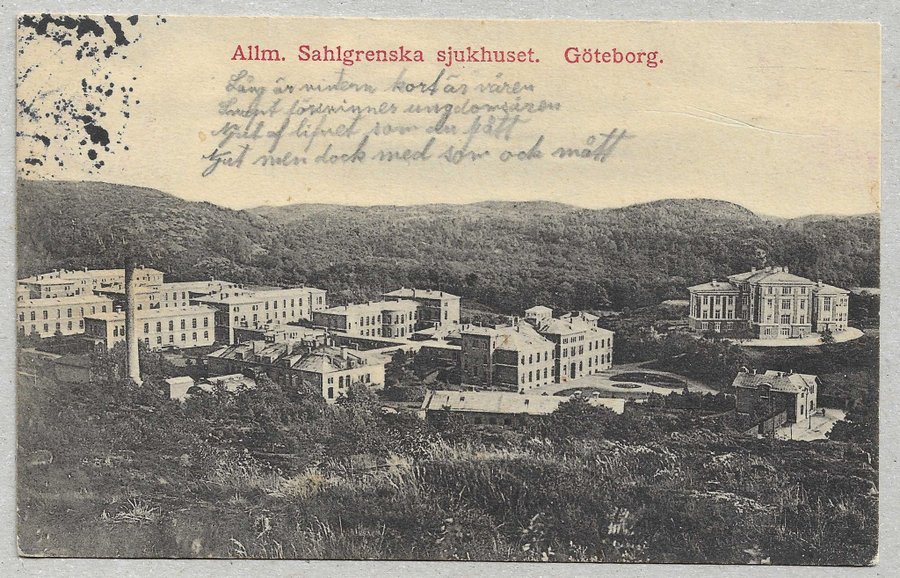 Allm. Sahlgrenska sjukhuset. Göteborg.
Lång är vintern kort är våren
Snart försvinner ungdomsåren
Njut af lifvet som du fått
Njut men dock med som ock mått